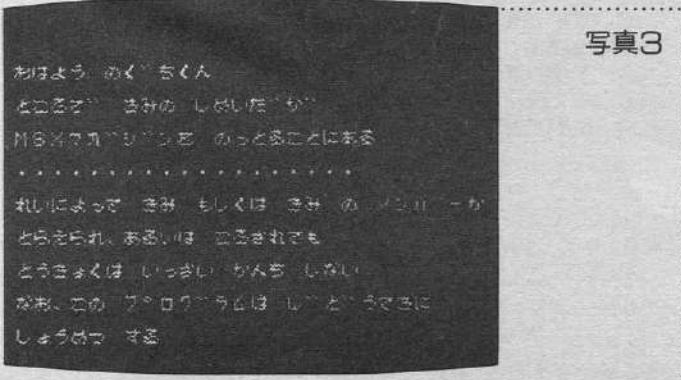 写真3
おはよう のぐちくん
ところで きみの しめいだが
MSXマガジンを のっとることにある
・・・・・・・・・・・・・・・・・・・
れいによって きみ もしくは きみ の メンバーが
とらえられ、あるいは ころされても
とうきょくは いっさい かんち しない
なお、この プログラムは じどうてきに
しょうめつ する